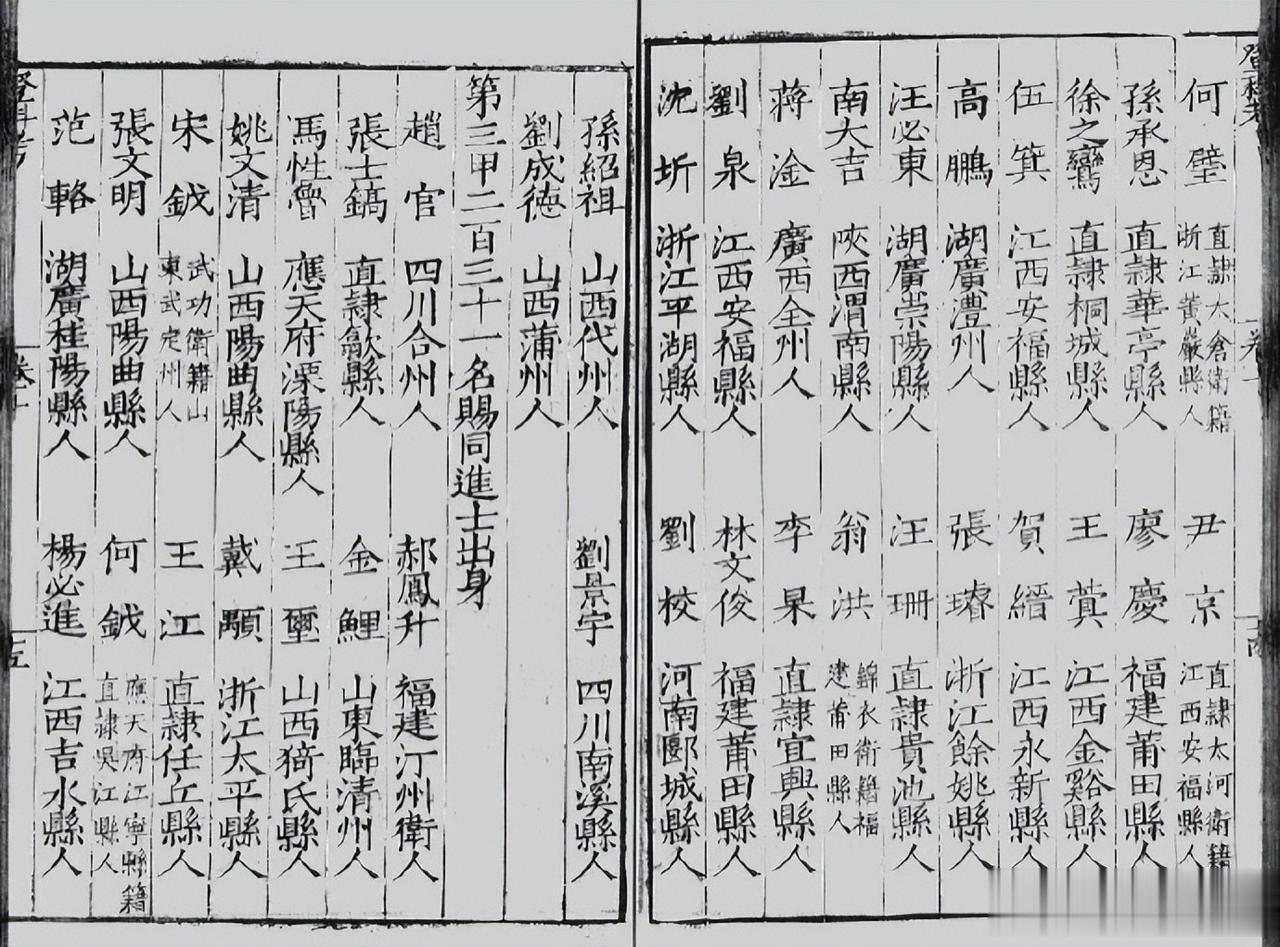 何璧 直隸太倉衛籍浙江黃巖縣人 尹京 直隸太河衛籍江西安福縣人
孫承恩 直隸華亭縣人 廖慶 福建莆田縣人
徐之鸞 直隸桐城縣人 王蓂 江西金谿縣人
伍箕 江西安福縣人 賀縉 江西永新縣人
高鵬 湖廣澧州人 張璿 浙江餘姚縣人
汪必東 湖廣崇陽縣人 汪珊 直隸貴池縣人
南大吉 陝西渭南縣人 翁洪 錦衣衛籍福建莆田縣人
蔣淦 廣西全州人 李杲 直隸宜興縣人
劉泉 江西安福縣人 林文俊 福建莆田縣人
沈圻 浙江平湖縣人 劉校 河南郾城縣人
孫紹祖 山西代州人 劉景宇 四川南溪縣人
劉成德 山西蒲州人
第三甲二百三十一名賜同進士出身
趙官 四川合州人 郝鳳升 福建汀州衛人
張士鎬 直隸歙縣人 金鯉 山東臨清州人
馮性魯 應天府溧陽縣人 王璽 山西猗氏縣人
姚文清 山西陽曲縣人 戴顒 浙江太平縣人
宋鉞 武功衛籍山東武定州人 王江 直隸任丘縣人
張文明 山西陽曲縣人 何鉞 應天府江寧縣籍直隸吳江縣人
范輅 湖廣桂陽縣人 楊必進 江西吉水縣人